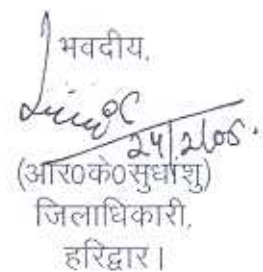 भवदीय,
24/2/05.
(आर0के0सुधांशु)
जिलाधिकारी,
हरिद्वार।